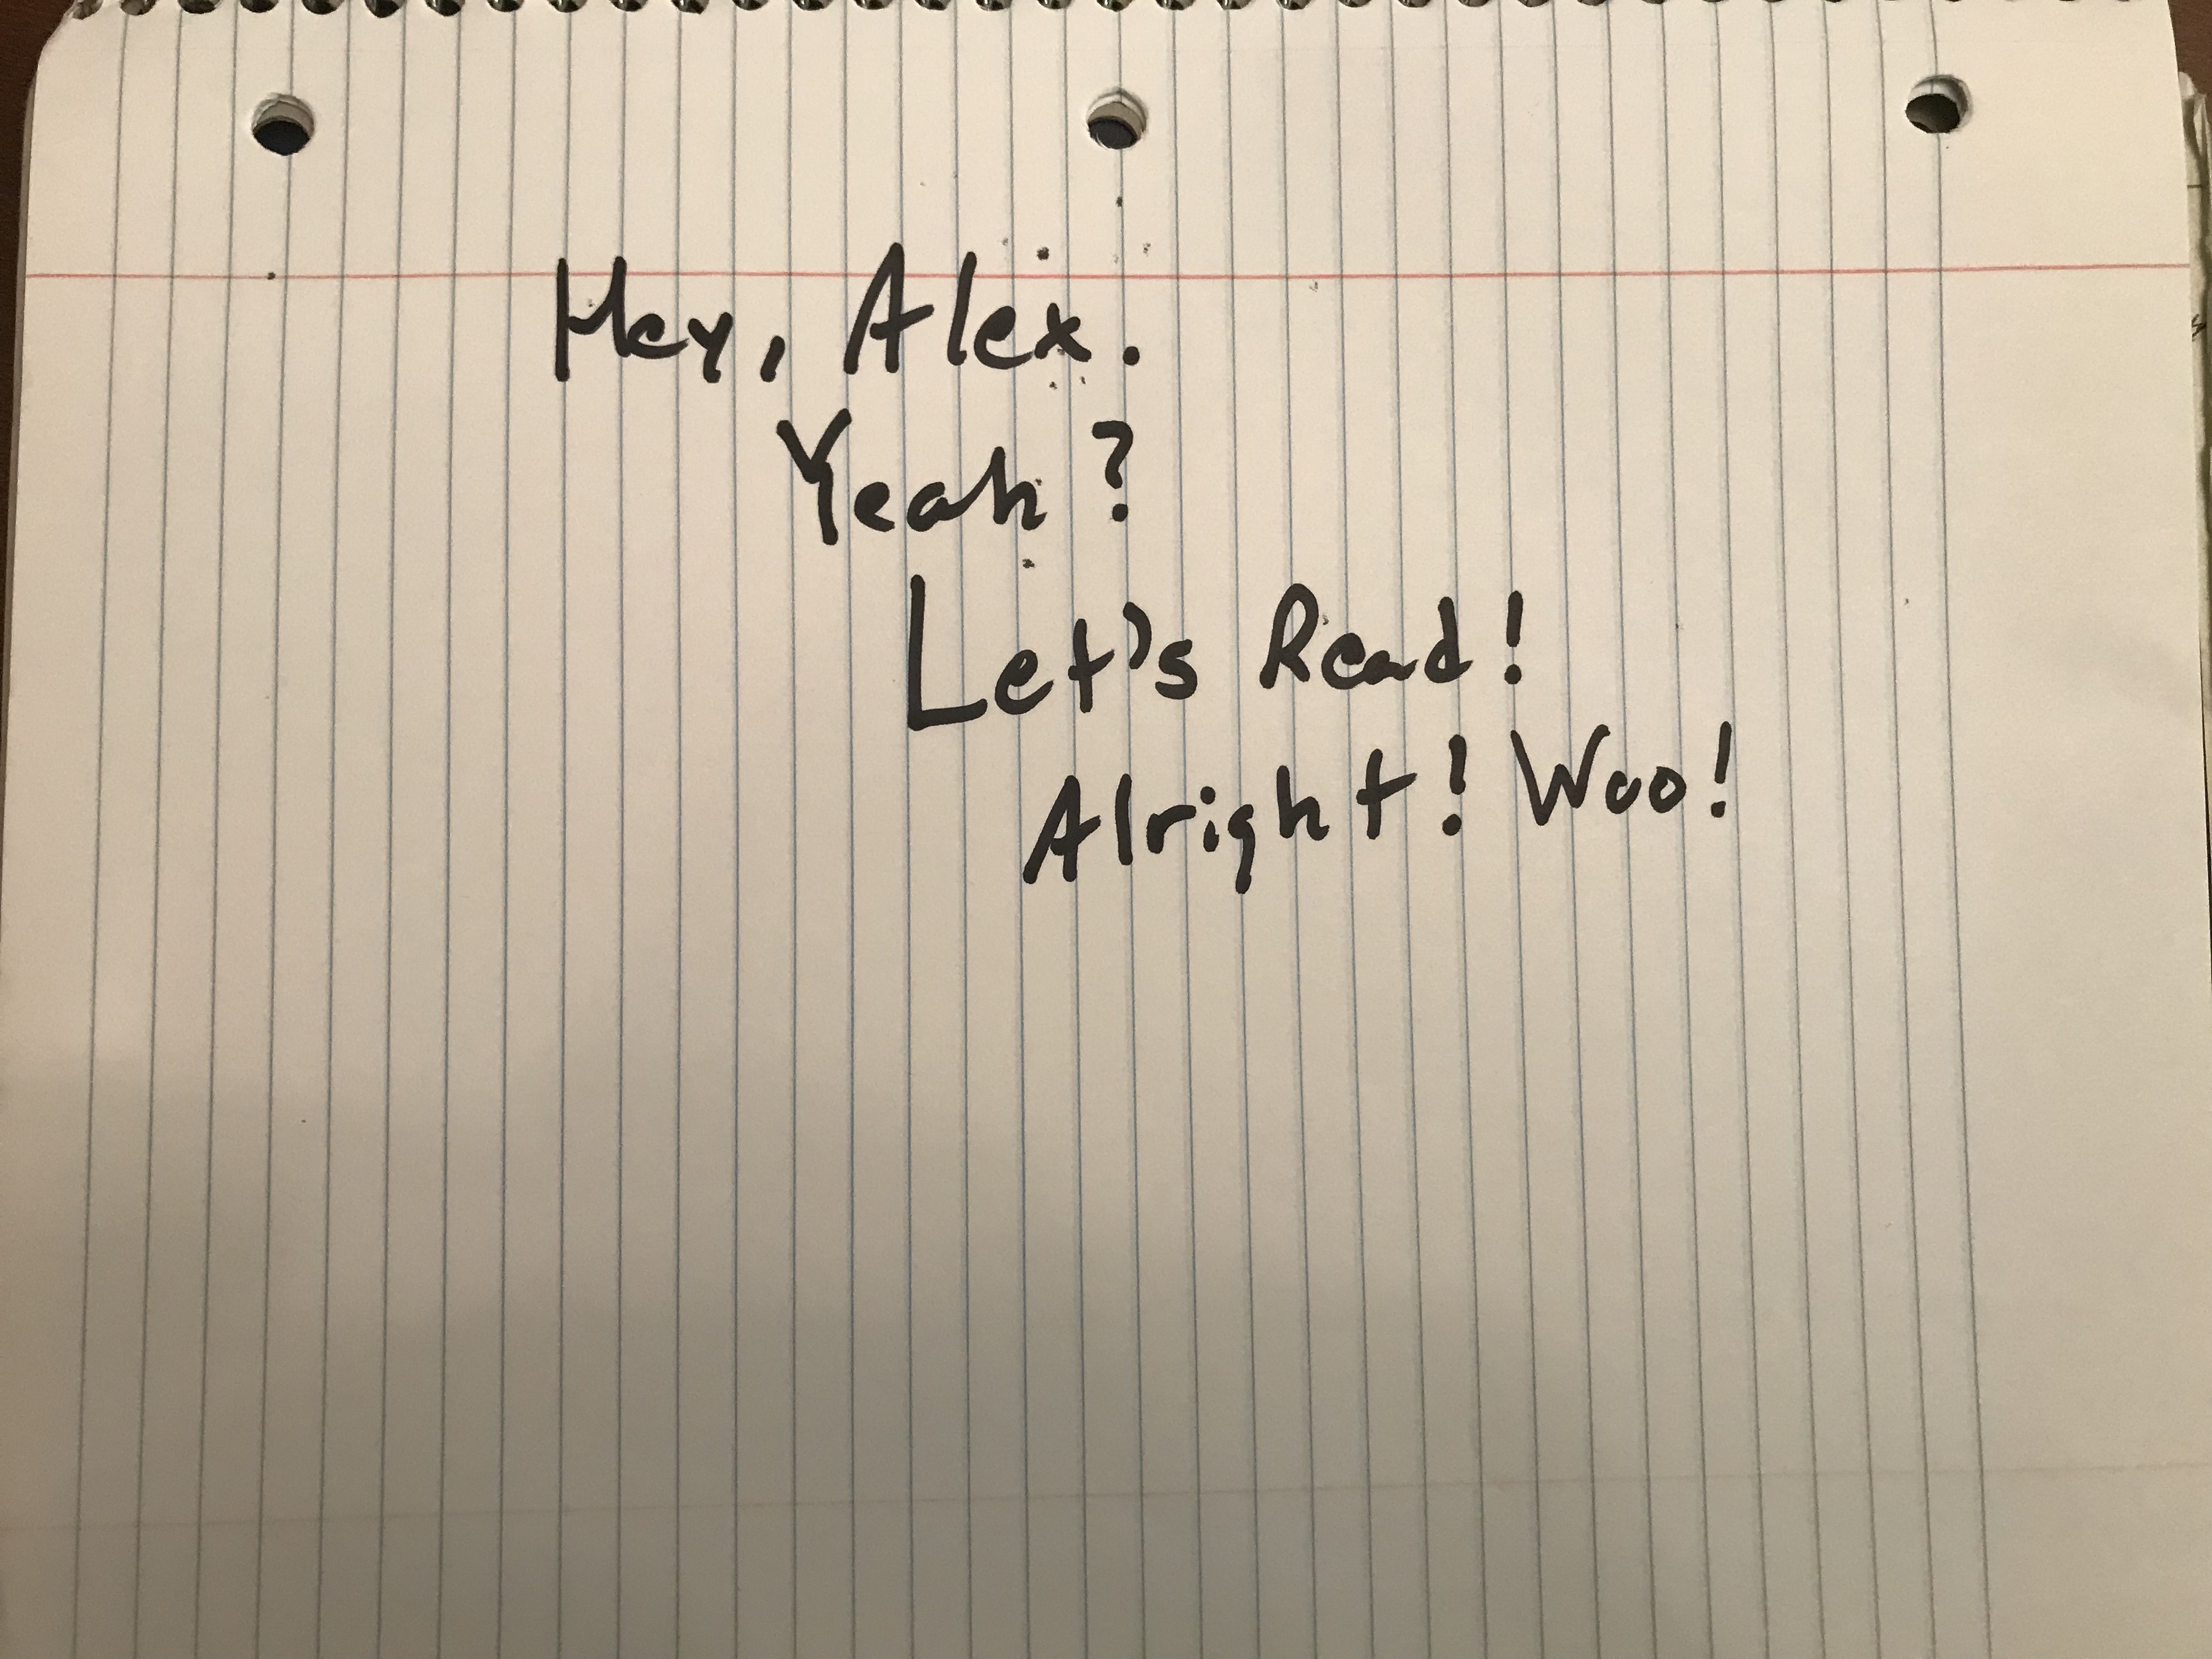 Hey, Alex.
Yeah?
Let's Read!
Alright! Woo!